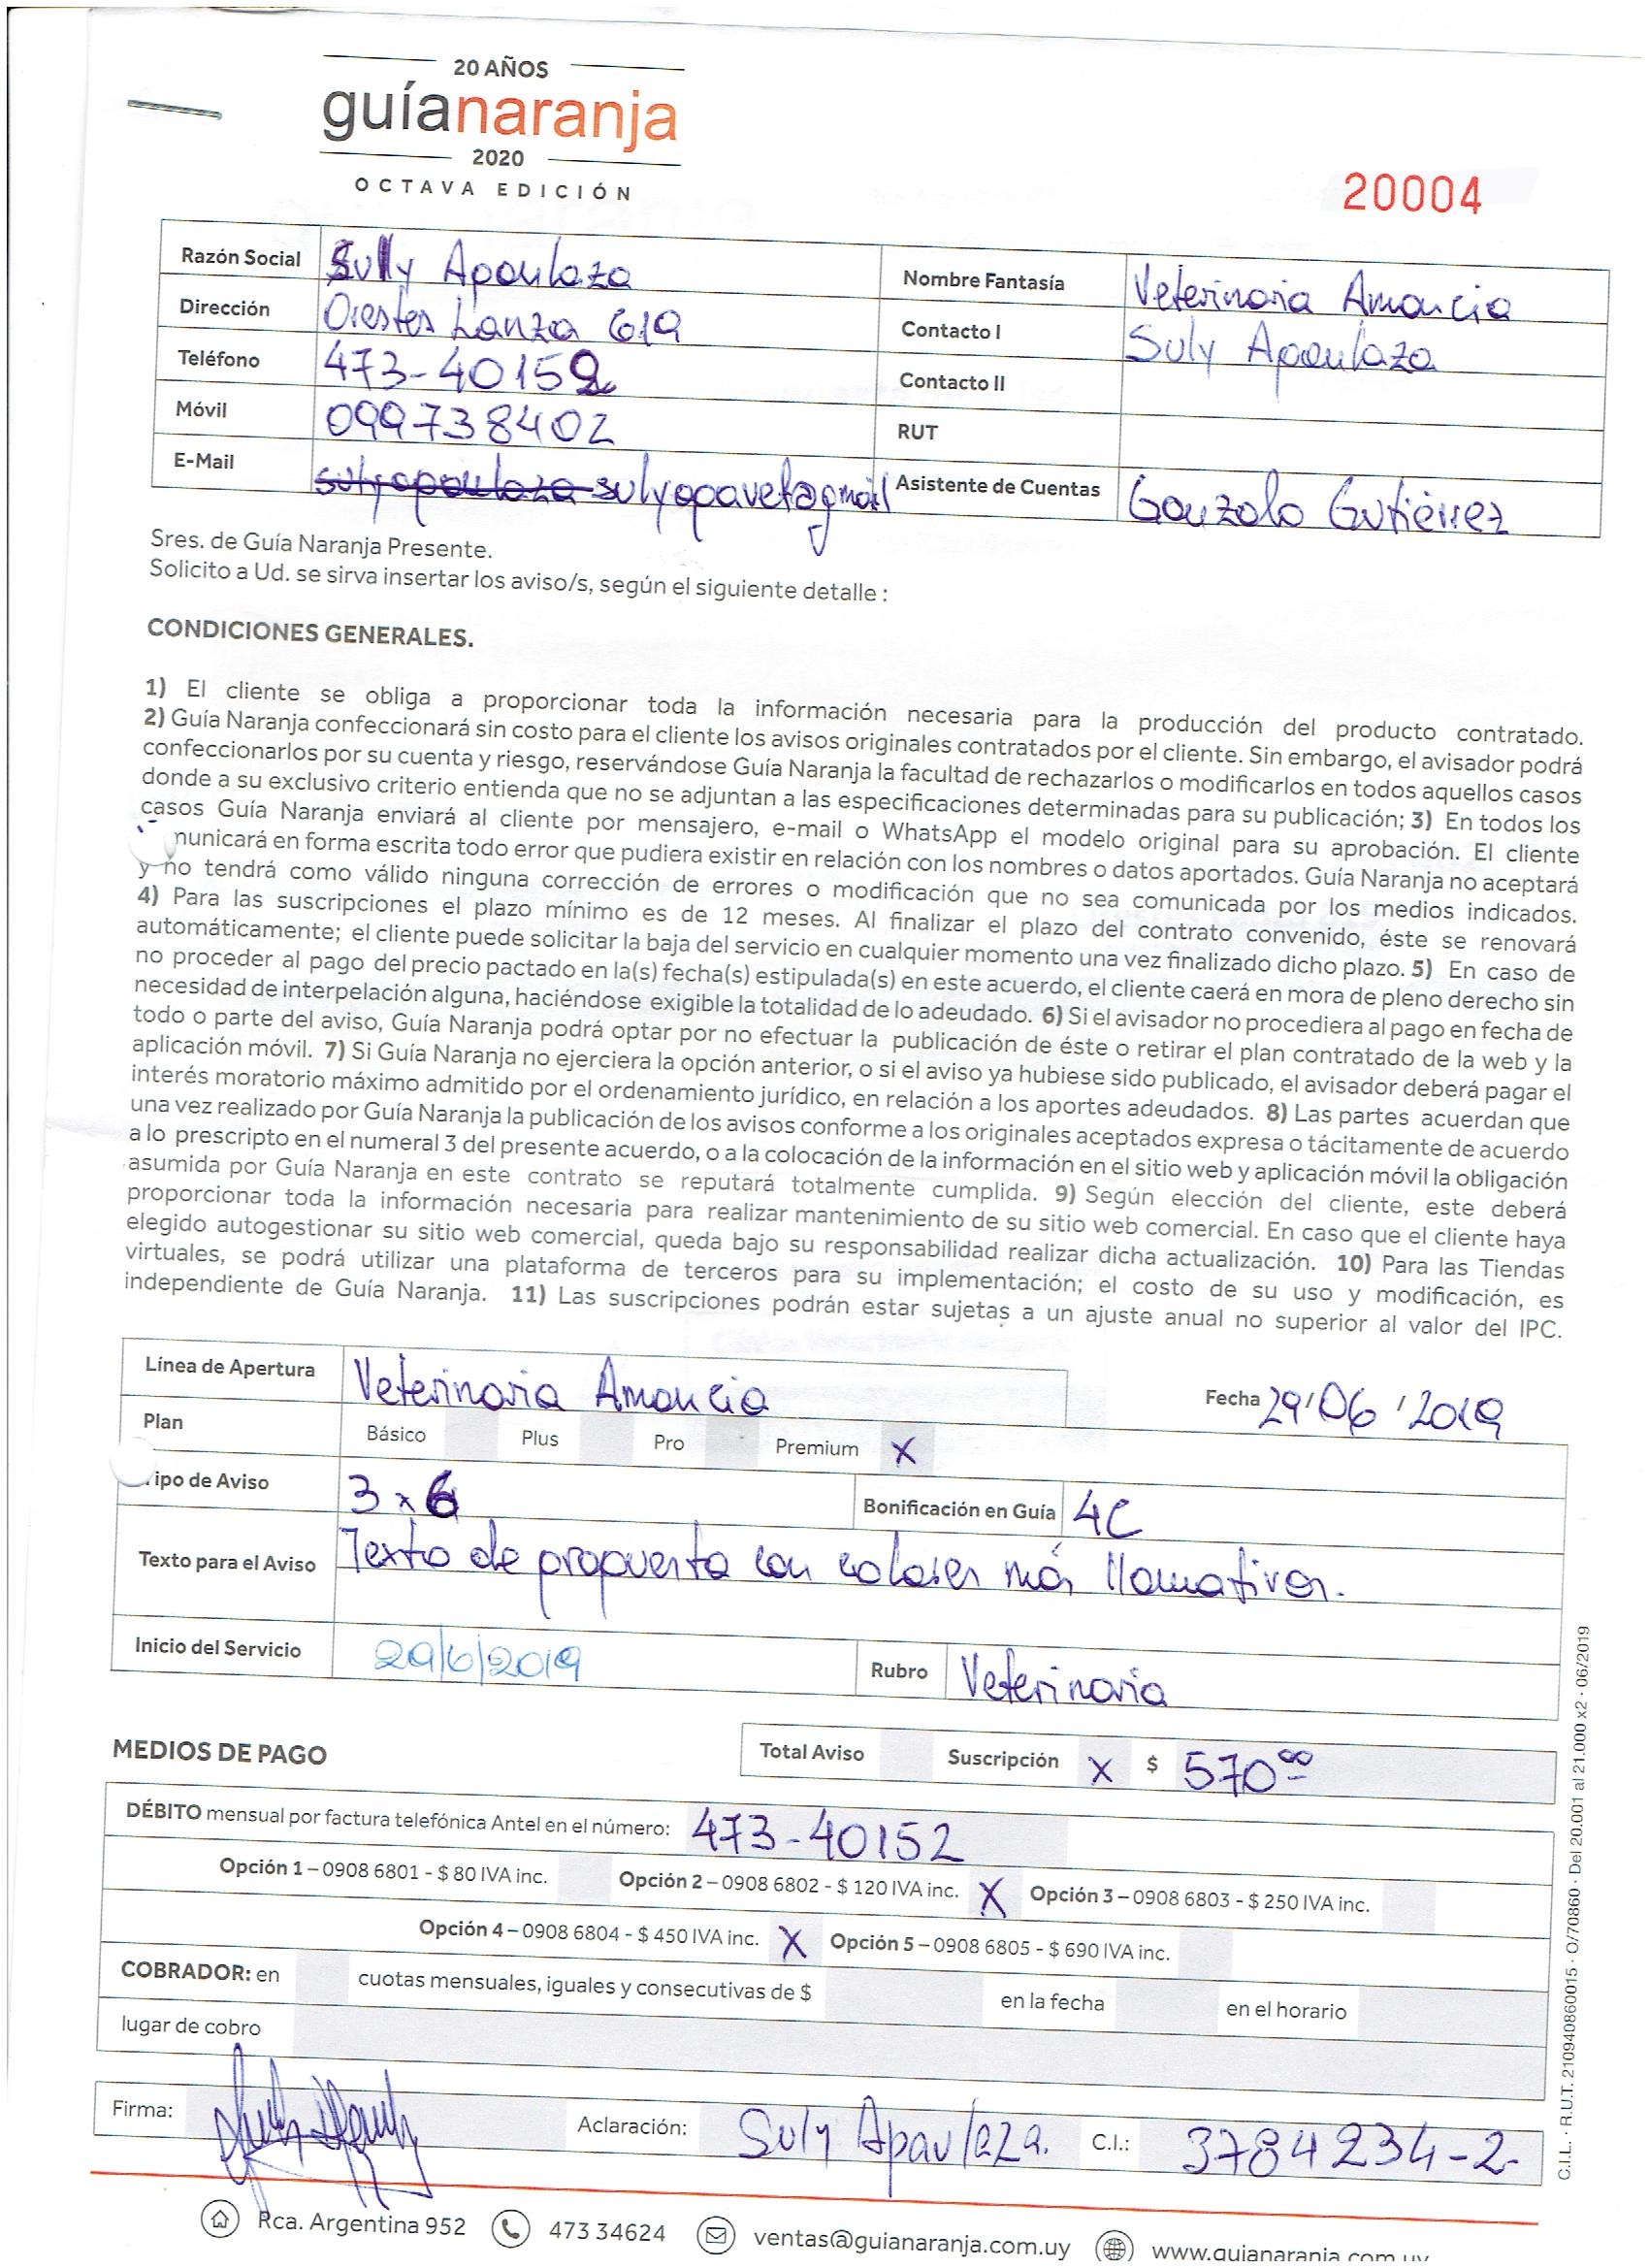 20 AÑOS
guíanaranja
2020
OCTAVA EDICIÓN
20004
Razón Social Suly Apaulaza
Nombre Fantasía Veterinaria Amancia
Dirección Orestes Lanza 619
Contacto I Suly Apaulaza
Teléfono 473-40152
Contacto II
Móvil 099738402
RUT
E-Mail sulyapaulaza sulyapavet@gmail
Asistente de Cuentas Gonzalo Gutiérrez
Sres. de Guía Naranja Presente.
Solicito a Ud. se sirva insertar los aviso/s, según el siguiente detalle :
CONDICIONES GENERALES.
1) El cliente se obliga a proporcionar toda la información necesaria para la producción del producto contratado.
2) Guía Naranja confeccionará sin costo para el cliente los avisos originales contratados por el cliente. Sin embargo, el avisador podrá
confeccionarlos por su cuenta y riesgo, reservándose Guía Naranja la facultad de rechazarlos o modificarlos en todos aquellos casos
donde a su exclusivo criterio entienda que no se adjuntan a las especificaciones determinadas para su publicación; 3) En todos los
casos Guía Naranja enviará al cliente por mensajero, e-mail o WhatsApp el modelo original para su aprobación. El cliente
municará en forma escrita todo error que pudiera existir en relación con los nombres o datos aportados. Guía Naranja no aceptará
y no tendrá como válido ninguna corrección de errores o modificación que no sea comunicada por los medios indicados.
4) Para las suscripciones el plazo mínimo es de 12 meses. Al finalizar el plazo del contrato convenido, éste se renovará
automáticamente; el cliente puede solicitar la baja del servicio en cualquier momento una vez finalizado dicho plazo. 5) En caso de
no proceder al pago del precio pactado en la(s) fecha(s) estipulada(s) en este acuerdo, el cliente caerá en mora de pleno derecho sin
necesidad de interpelación alguna, haciéndose exigible la totalidad de lo adeudado. 6) Si el avisador no procediera al pago en fecha de
todo o parte del aviso, Guía Naranja podrá optar por no efectuar la publicación de éste o retirar el plan contratado de la web y la
aplicación móvil. 7) Si Guía Naranja no ejerciera la opción anterior, o si el aviso ya hubiese sido publicado, el avisador deberá pagar el
interés moratorio máximo admitido por el ordenamiento jurídico, en relación a los aportes adeudados. 8) Las partes acuerdan que
una vez realizado por Guía Naranja la publicación de los avisos conforme a los originales aceptados expresa o tácitamente de acuerdo
a lo prescripto en el numeral 3 del presente acuerdo, o a la colocación de la información en el sitio web y aplicación móvil la obligación
asumida por Guía Naranja en este contrato se reputará totalmente cumplida. 9) Según elección del cliente, este deberá
proporcionar toda la información necesaria para realizar mantenimiento de su sitio web comercial. En caso que el cliente haya
elegido autogestionar su sitio web comercial, queda bajo su responsabilidad realizar dicha actualización. 10) Para las Tiendas
virtuales, se podrá utilizar una plataforma de terceros para su implementación; el costo de su uso y modificación, es
independiente de Guía Naranja. 11) Las suscripciones podrán estar sujetas a un ajuste anual no superior al valor del IPC.
Línea de Apertura Veterinaria Amancia
Fecha 29/06/2019
Plan Básico Plus Pro Premium X
Tipo de Aviso 3x6
Bonificación en Guía 4C
Texto para el Aviso Texto de propuesta con colores más llamativos.
Inicio del Servicio 29/6/2019
Rubro Veterinaria
MEDIOS DE PAGO
Total Aviso Suscripción X $ 570⁰⁰
DÉBITO mensual por factura telefónica Antel en el número: 473-40152
Opción 1 – 0908 6801 - $ 80 IVA inc. Opción 2 – 0908 6802 - $ 120 IVA inc. X Opción 3 – 0908 6803 - $ 250 IVA inc.
Opción 4 – 0908 6804 - $ 450 IVA inc. X Opción 5 – 0908 6805 - $ 690 IVA inc.
COBRADOR: en cuotas mensuales, iguales y consecutivas de $ en la fecha en el horario
lugar de cobro
Firma: Aclaración: Suly Apaulaza. C.I.: 3784234-2-
Rca. Argentina 952 473 34624 ventas@guianaranja.com.uy www.guianaranja.com.uy
C.I.L. · R.U.T. 210940860015 · O/70860 · Del 20.001 al 21.000 x2 · 06/2019